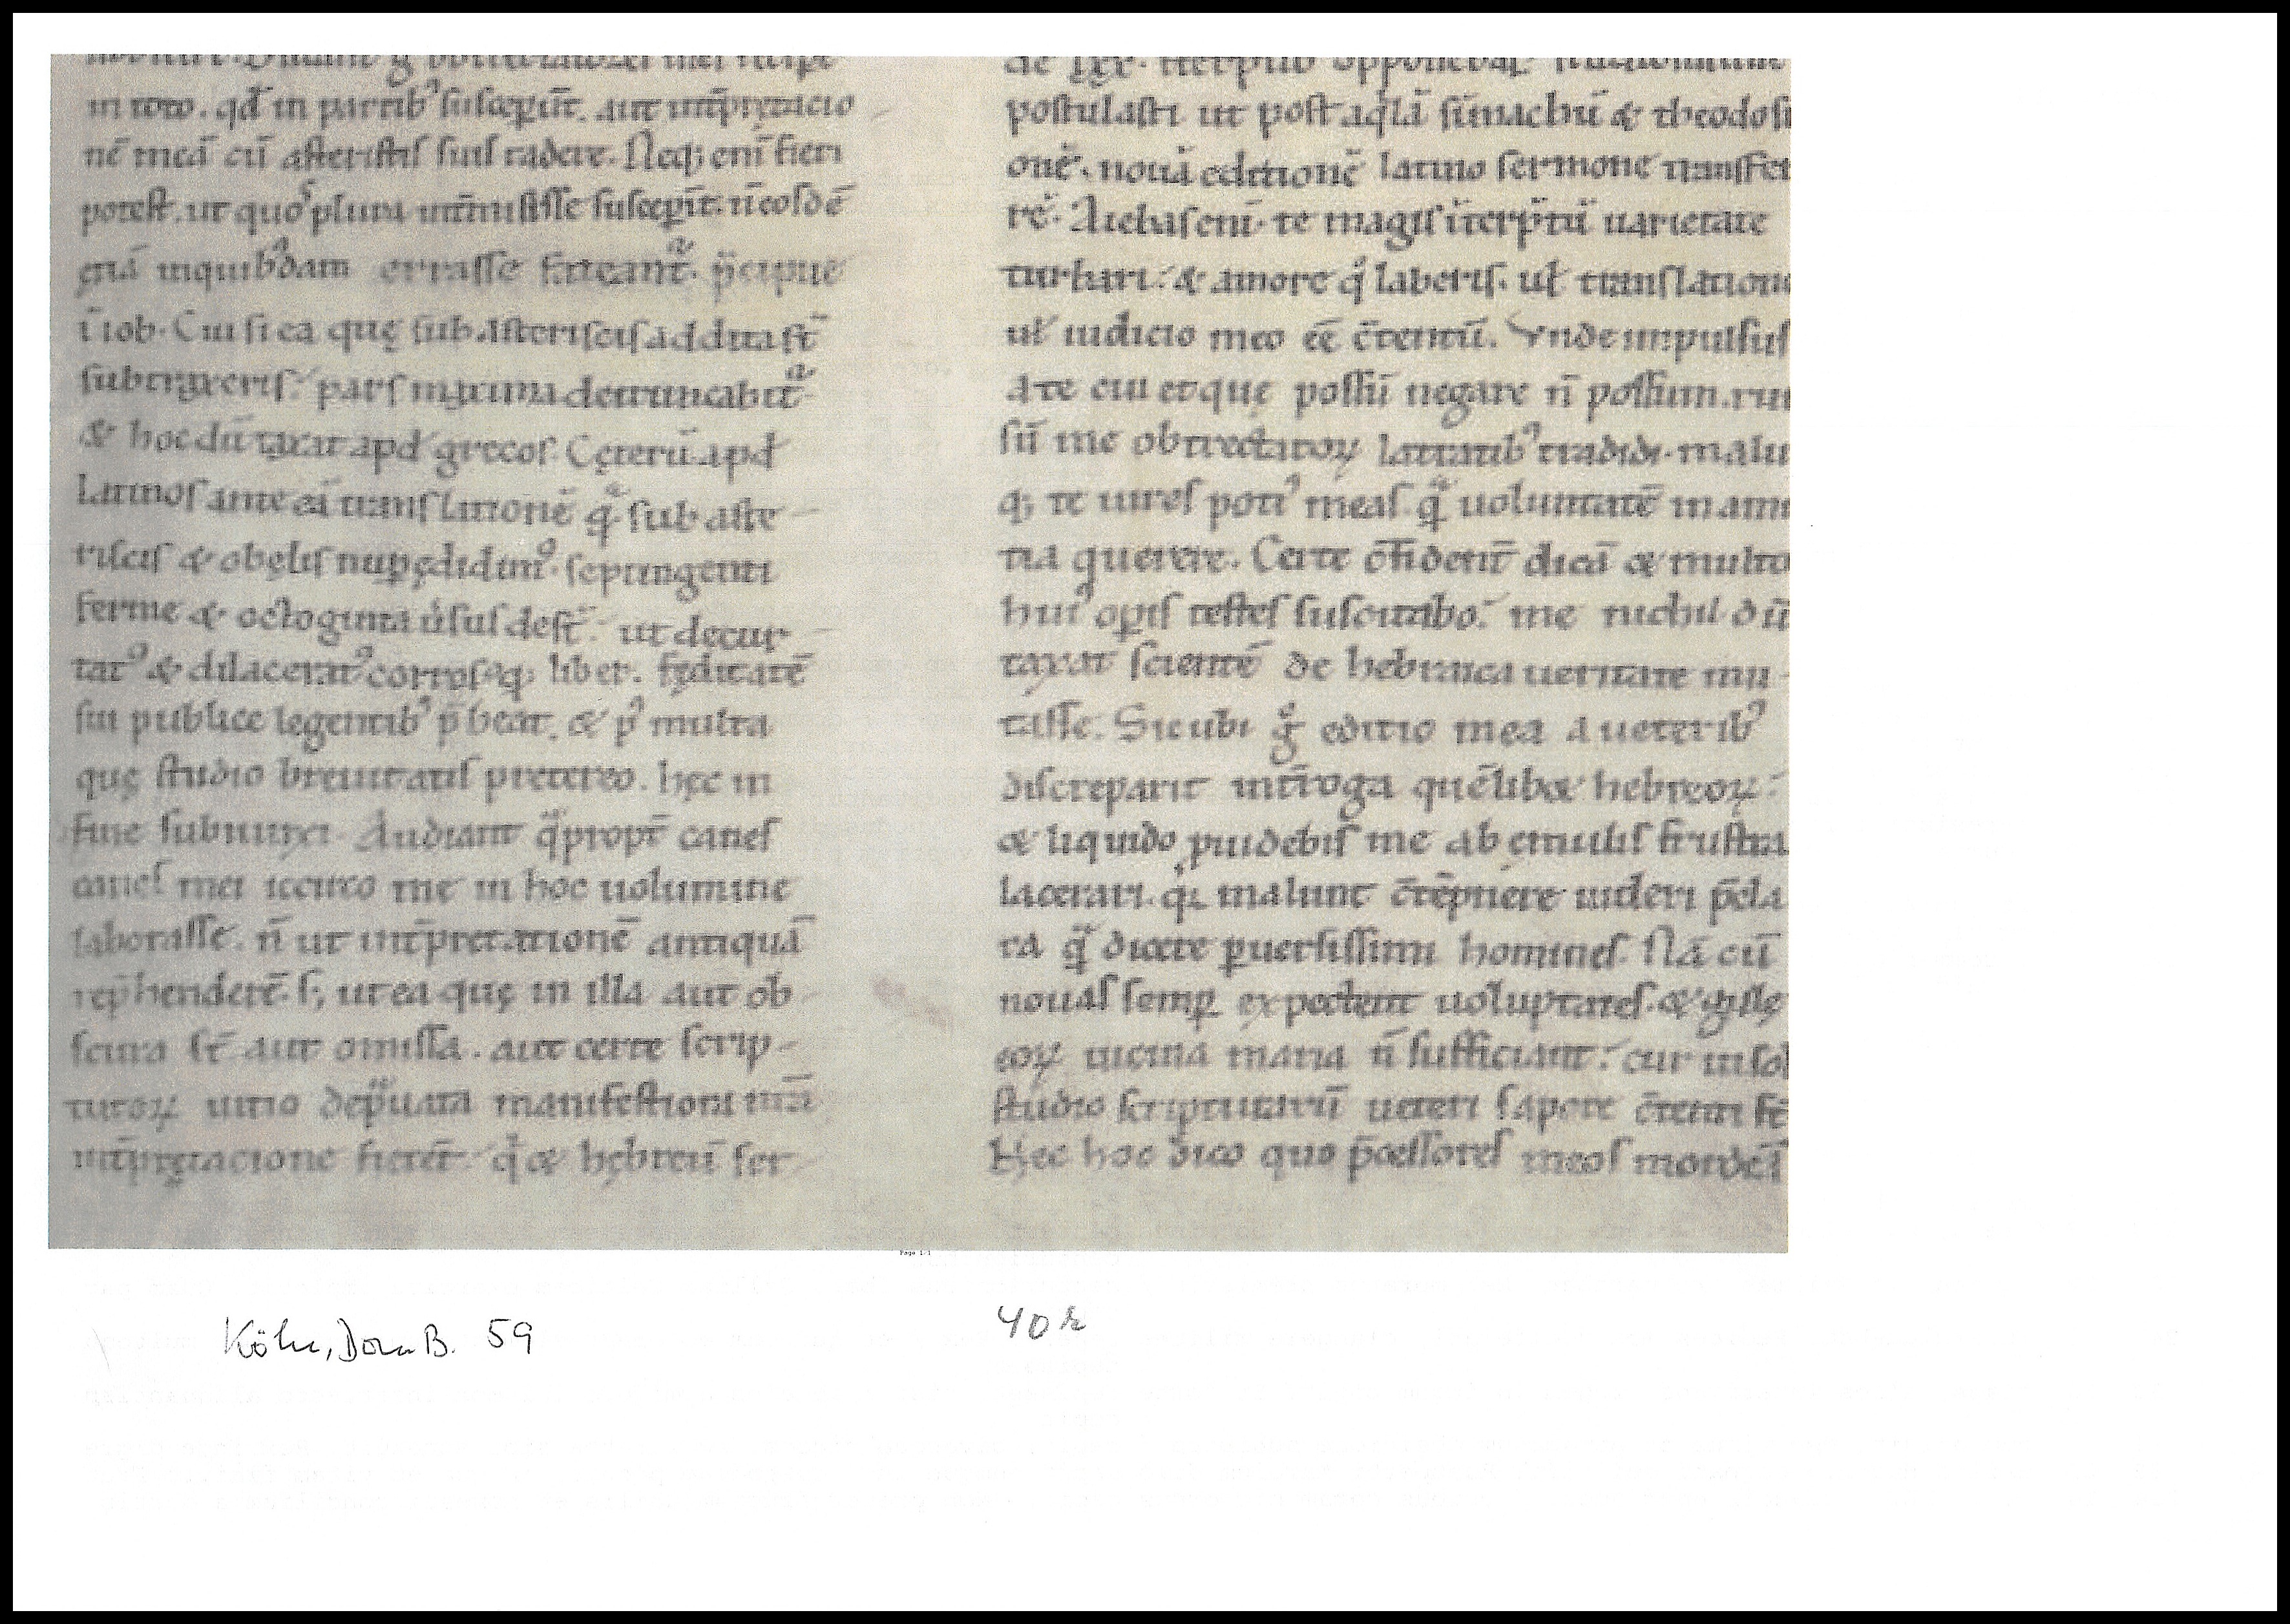 in toto. qđ in partib᾽ suscep̱er̄t. aut int̄p̄ręta&cio
nē meā cū asteriscis suis radere. Neq; eni̅ fieri
potest. ut quoꝰ plura int̄misisse suscep̱it. n̄ eosdē
ęiā inquibꝰdam errasse fateant᷑. p̄cipue
ī iob. Cui si ea quę sub asteriscis addita st̄
subtraxeris. pars maxima detruncabit᷑
& hoc dū taxat apđ grecos. Cęterū apđ
Latinos ante eā translationē q̄ sub aste
riscis & obelis nup̱ ędidimꝰ. septingenti
ferme & octoginta ūsus desт̄. ut decur
tatꝰ & dilaceratꝰ corrosꝰq; liber. fęditatē
sui publice legentibꝰ p̄beat. & pꝰ multa
quę studio breuitatis pretereo. hęc in
fine subiunxi. Audiant q̄propt̄ canes
canes mei iccirco me in hoc uolumine
laborasse. n̄ ut int̄pretationē antiquā
rep̄henderē. s; ut ea quę in illa aut ob
scura st̄ aut omissa. aut certe scrip-
turoꝝ uitio dep̄uata manifestiora nr̄a
int̄pretacione fierēt. q̇ & hębreū ser
postulasti ut post aq̇lā simachū & theodosi
onē. nouā editionē latino sermone transfer
rē. Aiebas eni̅ te magis īterp̄tū uarietate
turbari. & amore q̇ laberis. uł translatione
uł iudicio meo eē c̄tentū. Vnde inpulsus
a te cui et quę possū negare n̄ possum. rur
sū me obtrectatoꝝ latratibꝰ tradidi. malu
q; te uires potiꝰ meas. q̄ uoluntatē in ami
tia querere. Certe c̄fident̄ dicā & multo
huiꝰ op̱is testes suscitabo. me nichil dū
taxat scientē de hebraica ueritate mu-
tasse. Sicubi g̊ editio mea a ueteribꝰ
discreparit int̄roga quēlib& hebreoꝝ.
& liquido p̱uidebis me ab emulis frustra
lacerari. q̇ malunt c̄tēpnere uideri p̄cla
ra q̄ dicere p̱uersissimi homines. Nā cū
nouas semp̱ expectent uoluptates. & gulę
eoꝝ uicina maria n̄ sufficiant. cur in solo
studio scripturarū ueteri sapore c̄tenti st̄
Hec hoc dico quo p̄cessores meos mordeā
Page 1/1
Köln, Dom B. 59
40 r